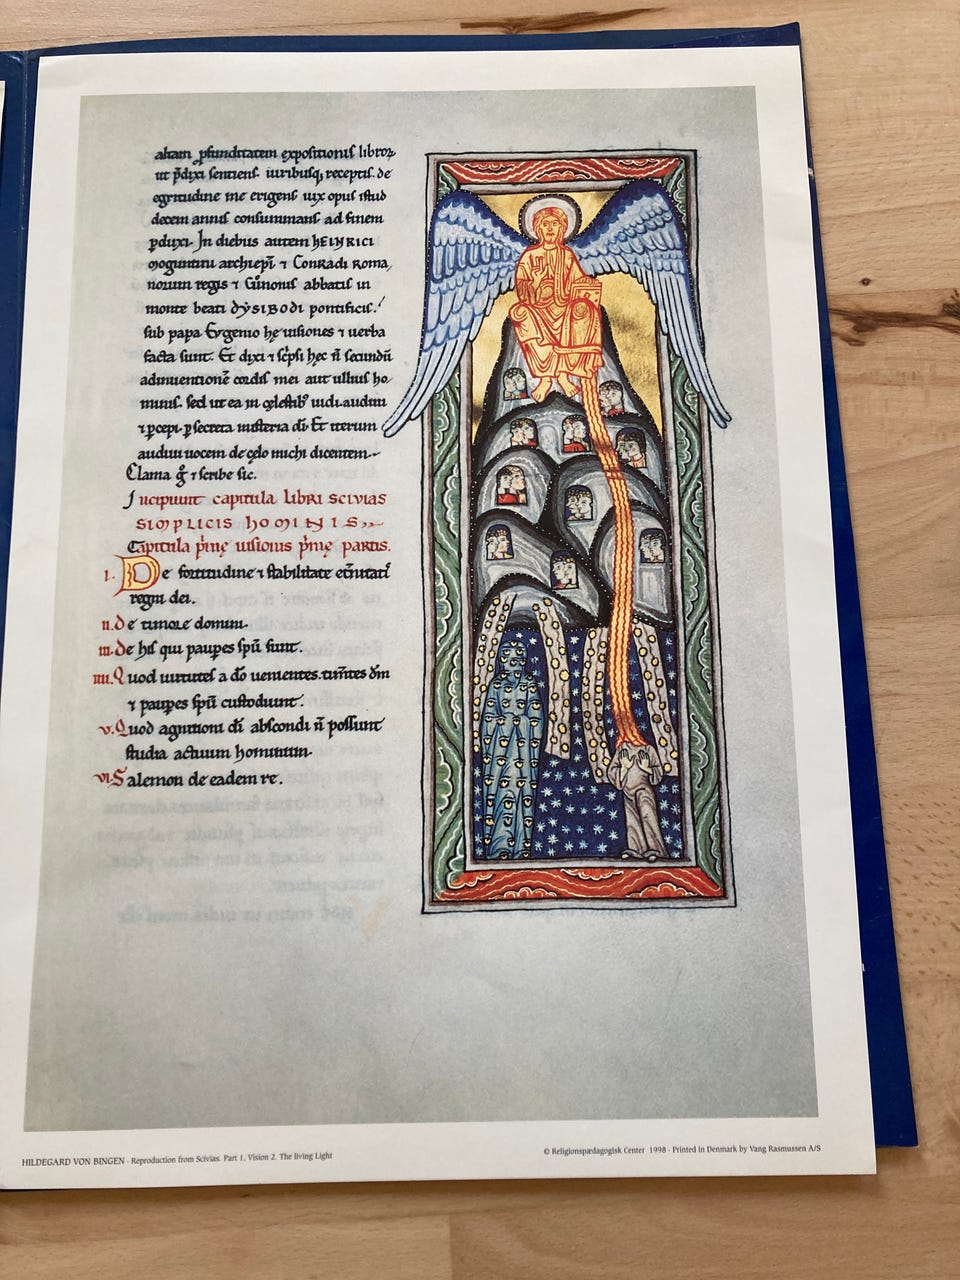 aliam ꝓfunditatem expositionis libroꝝ
ut p̄dixi sentiens. uiribusq; receptis. de
egritudine me erigens uix opus istud
decem annis consummans ad finem
pduxi. In diebus autem hEINRICI
moguntini archiep̄i ⁊ Conradi Roma,
norum regis ⁊ Cunonis abbatis in
monte beati dySIBODI pontificis.
sub papa Evgenio hę uisiones ⁊ uerba
facta sunt. Et dixi ⁊ sc̄psi hęc n̄ secundū
adinuentionē cordis mei aut ullius ho,
minis. sed ut ea in cęlestib; uidi. audiui
⁊ ꝑcepi. ꝑ secreta misteria dī. Et iterum
audiui uocem de cęlo michi dicentem.
Clama g̊ ⁊ scribe sic.
Incipiunt capitula libri scivias
simplicis hominis,,
Capitula p̄mę uisionis p̄mę partis.
I. De fortitudine ⁊ stabilitate et̄nitatī
regni dei.
II. De timore domini.
III. De his qui paupes sp̄u sunt.
IIII. Quod uirtutes a dō uenientes. tim̄tes dm̄
⁊ paupes sp̄u custodiunt.
V. Quod agnitioni dī abscondi n̄ possunt
studia actuum hominum.
VI. Salemon de eadem re.
HILDEGARD VON BINGEN - Reproduction from Scivias. Part 1, Vision 2. The living Light
© Religionspædagogisk Center 1998 - Printed in Denmark by Vang Rasmussen A/S